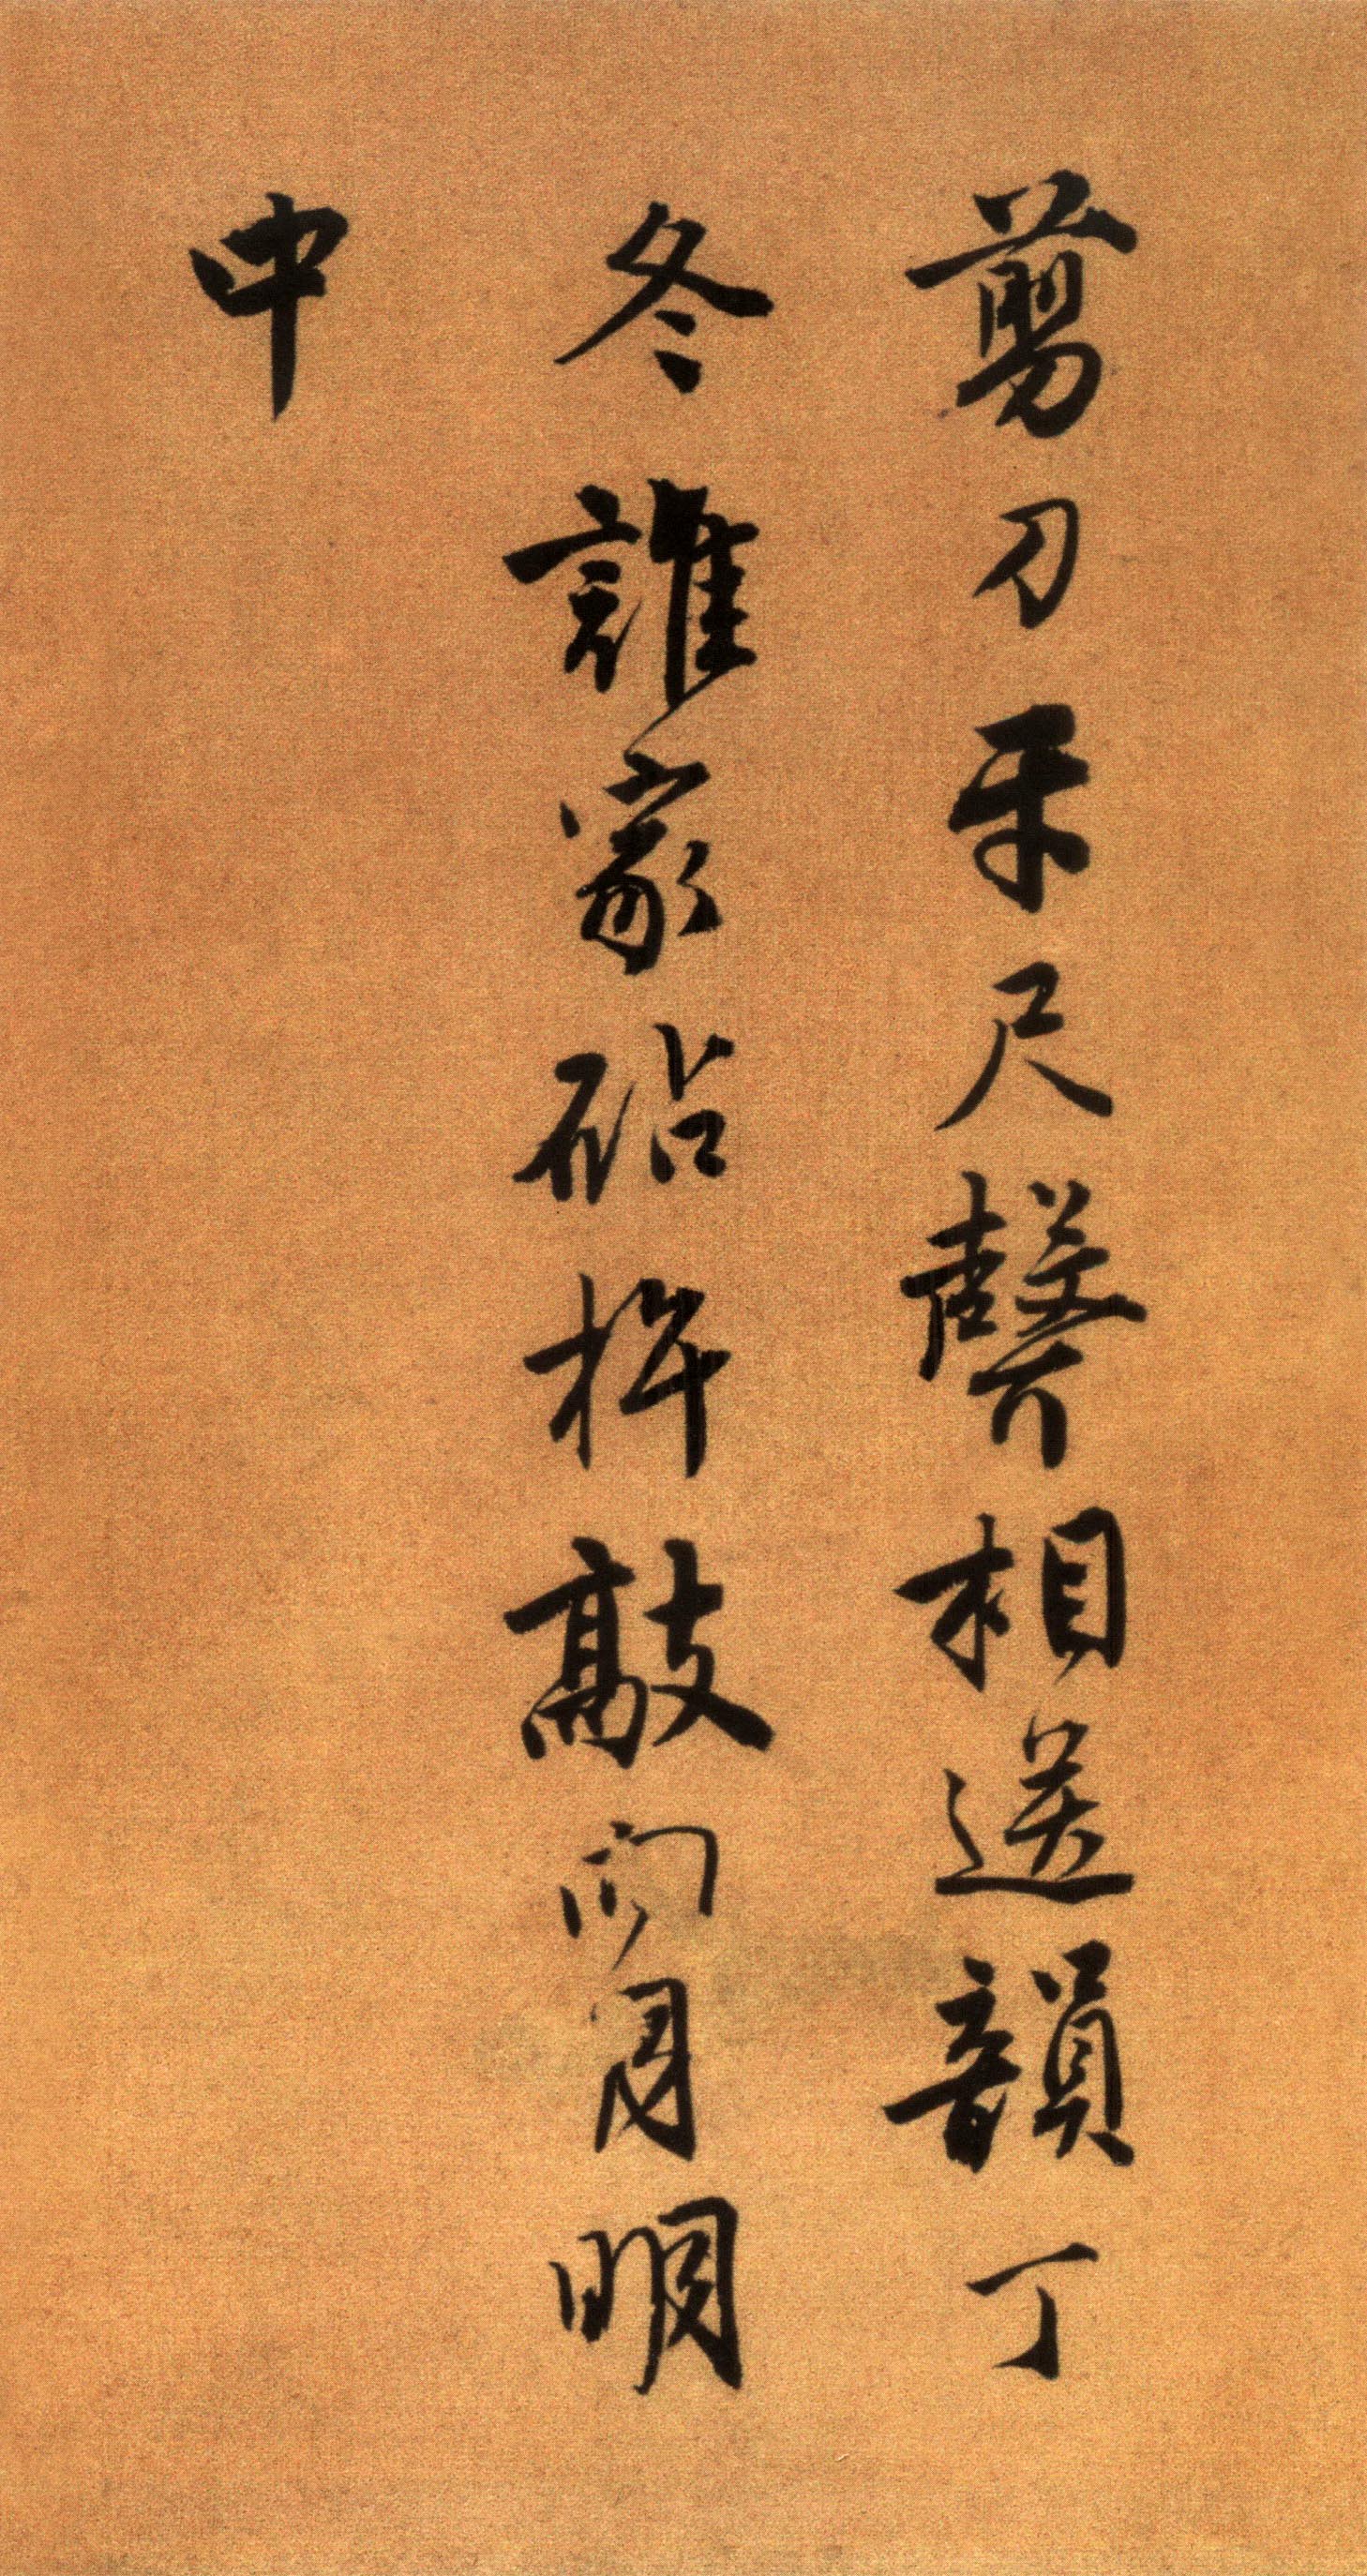 剪刀牙尺聲相送韻丁
冬誰家砧杵敲向月明
中